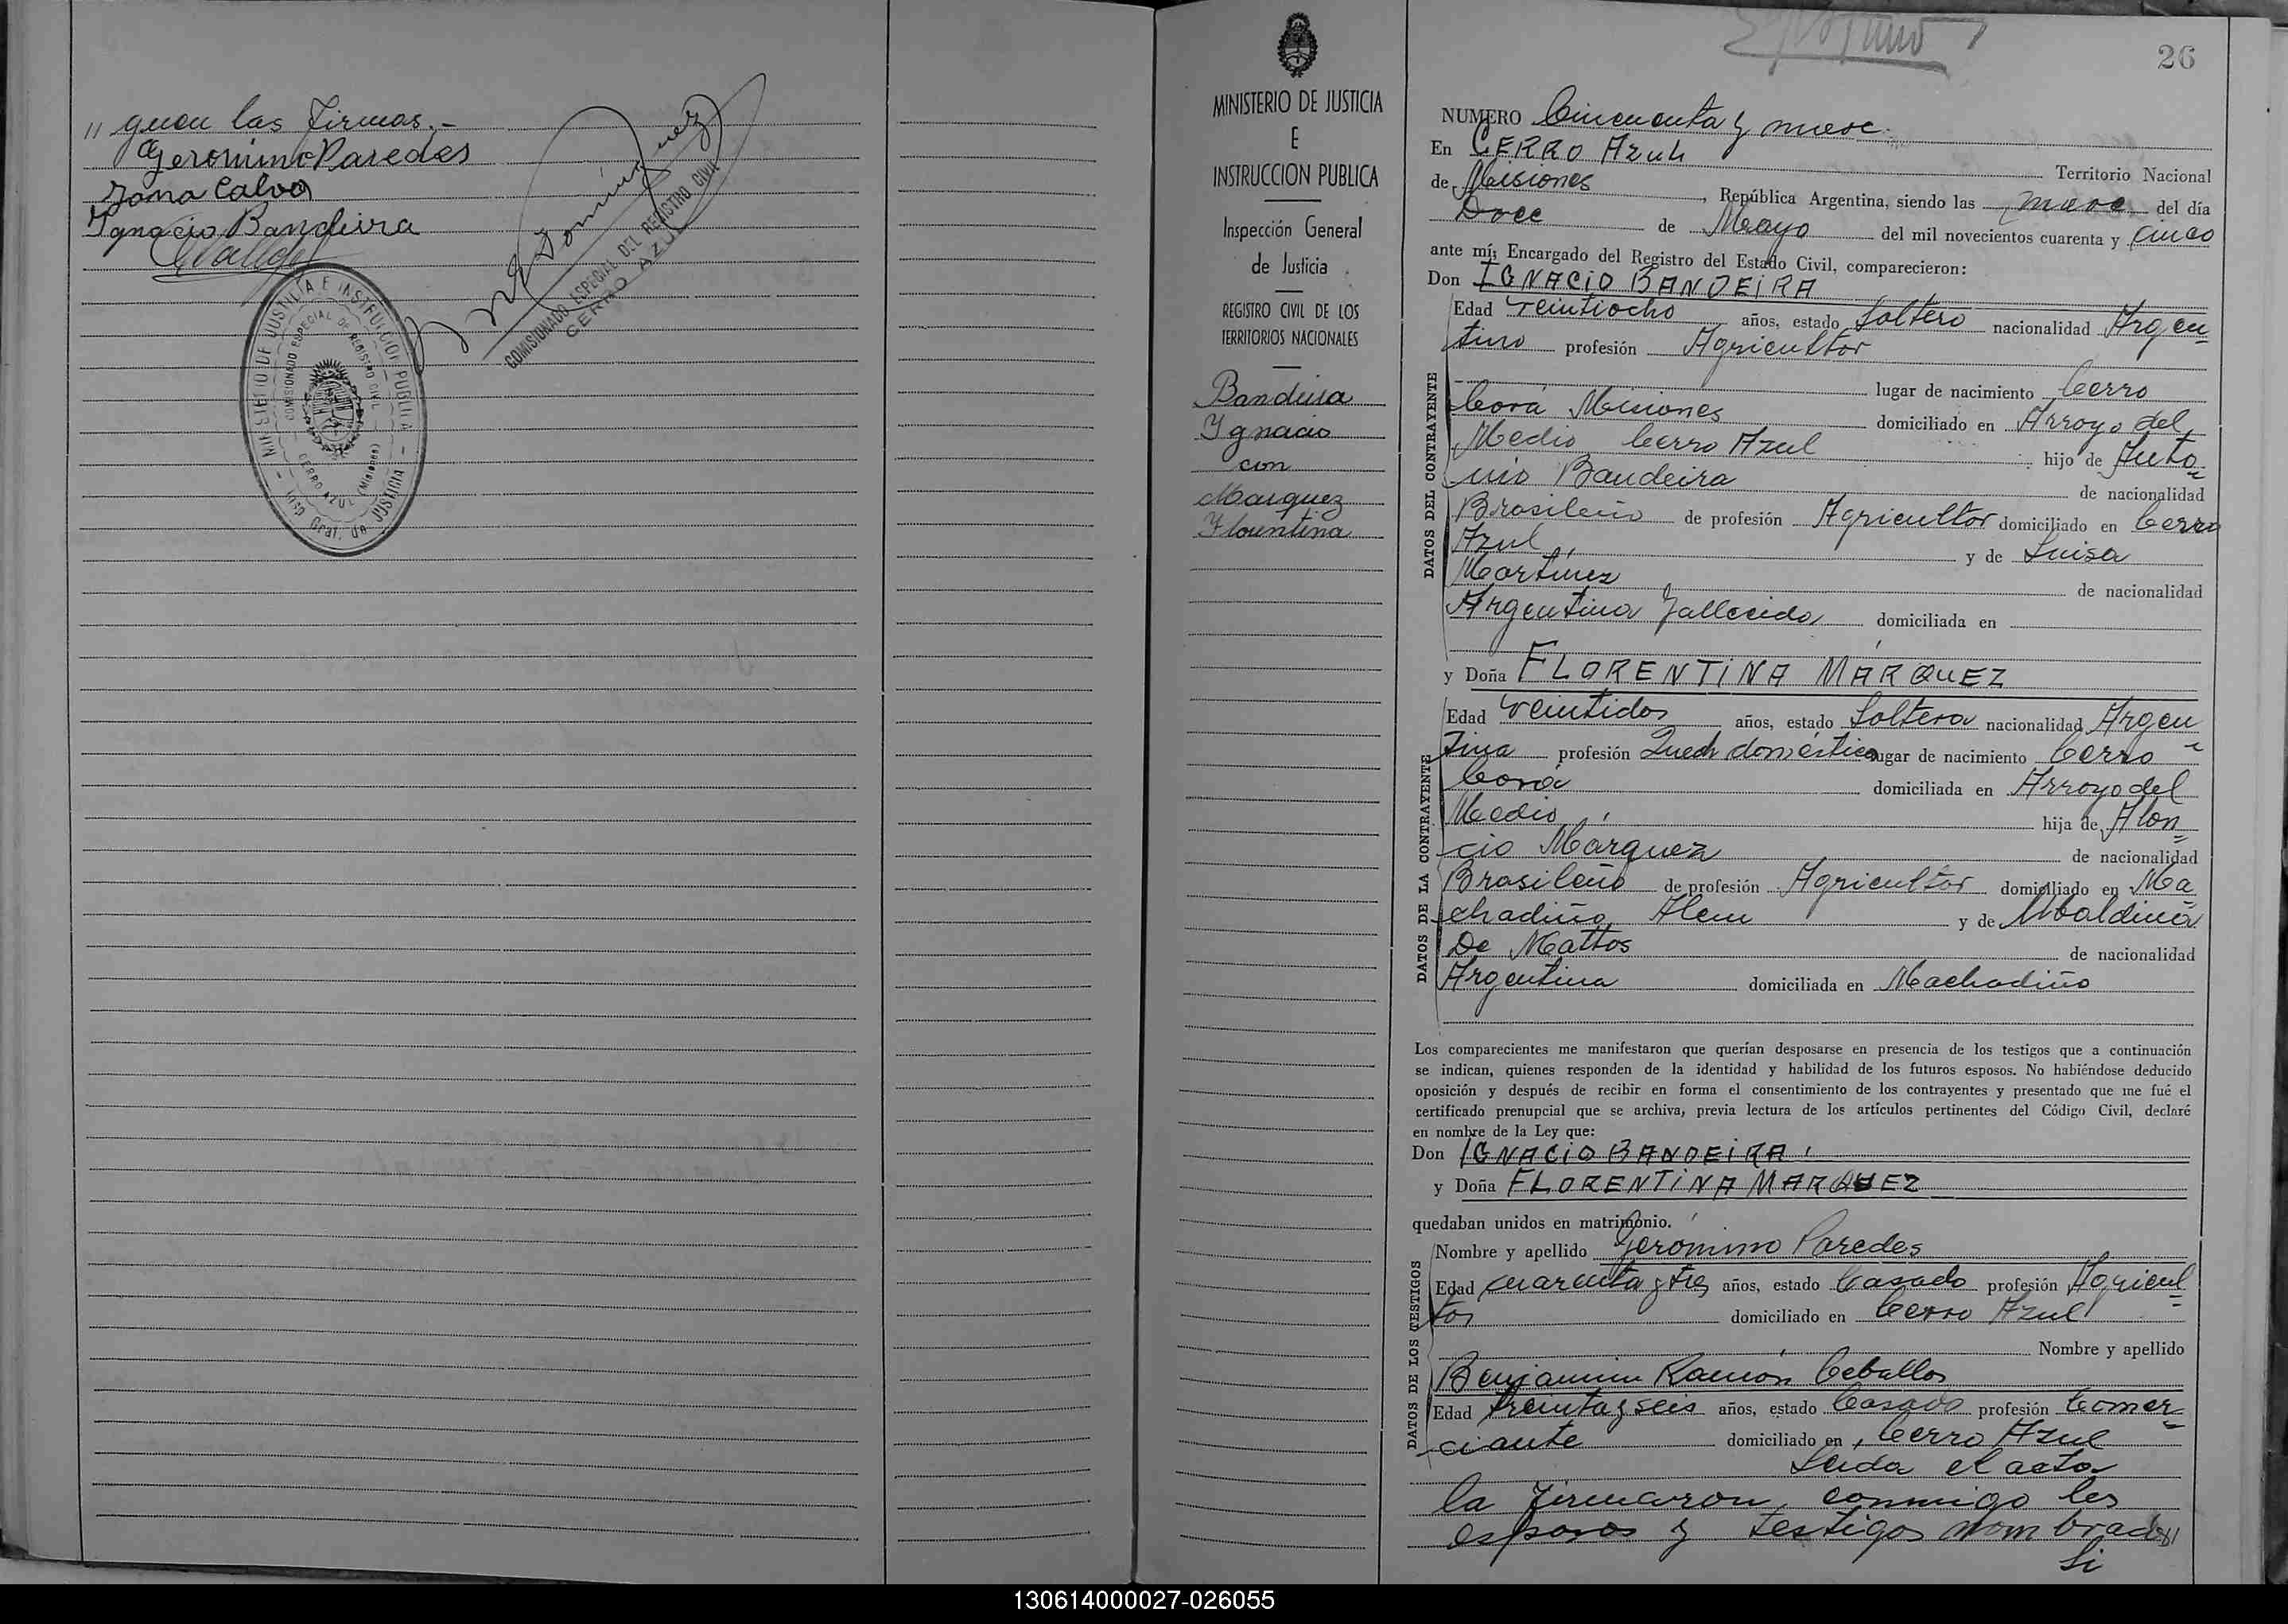 // guen las firmas.-
Geronimo Paredes
Calvo
Ignacio Bandeira
COMISIONADO ESPECIAL DEL REGISTRO CIVIL
CERRO AZUL
MINISTERIO DE JUSTICIA E INSTRUCCION PUBLICA
COMISIONADO ESPECIAL DE REGISTRO CIVIL
CERRO AZUL (Misiones)
Insp Gral. de JUSTICIA
MINISTERIO DE JUSTICIA
E
INSTRUCCION PUBLICA
Inspección General
de Justicia
REGISTRO CIVIL DE LOS
TERRITORIOS NACIONALES
Bandeira
Ignacio
con
Marquez
Florentina
26
NUMERO Cincuenta y nueve.
En CERRO AZUL Territorio Nacional
de Misiones, República Argentina, siendo las nueve del día
Doce de Mayo del mil novecientos cuarenta y cinco
ante mí, Encargado del Registro del Estado Civil, comparecieron:
Don IGNACIO BANDEIRA
DATOS DEL CONTRAYENTE
Edad veintiocho años, estado Soltero nacionalidad Argen
tino profesión Agricultor
lugar de nacimiento Cerro
Corá Misiones domiciliado en Arroyo del
Medio Cerro Azul hijo de
Bandeira de nacionalidad
Brasileño de profesión Agricultor domiciliado en Cerro
Azul y de Luisa
Martinez de nacionalidad
Argentina fallecida domiciliada en
y Doña FLORENTINA MARQUEZ
DATOS DE LA CONTRAYENTE
Edad veintidos años, estado Soltera nacionalidad Argen
tina profesión Queh domésticos lugar de nacimiento Cerro
Corá domiciliada en Arroyo del
Medio hija de Alon=
cio Márquez de nacionalidad
Brasileño de profesión Agricultor domiciliado en Ma
chadiño Alem y de Ubaldina
De Mattos de nacionalidad
Argentina domiciliada en Machadiño
Los comparecientes me manifestaron que querían desposarse en presencia de los testigos que a continuación
se indican, quienes responden de la identidad y habilidad de los futuros esposos. No habiéndose deducido
oposición y después de recibir en forma el consentimiento de los contrayentes y presentado que me fué el
certificado prenupcial que se archiva, previa lectura de los artículos pertinentes del Código Civil, declaré
en nombre de la Ley que:
Don IGNACIO BANDEIRA
y Doña FLORENTINA MARQUEZ
quedaban unidos en matrimonio.
DATOS DE LOS TESTIGOS
Nombre y apellido Jeronimo Paredes
Edad cuarenta y tres años, estado Casado profesión Agricul=
tor domiciliado en Cerro Azul
Nombre y apellido
Benjamin Ramón Ceballos
Edad treinta y seis años, estado Casado profesión Comer=
ciante domiciliado en Cerro Azul
Leida el acta
la firmaron conmigo los
esposos y testigos nombrados//
Si
130614000027-026055